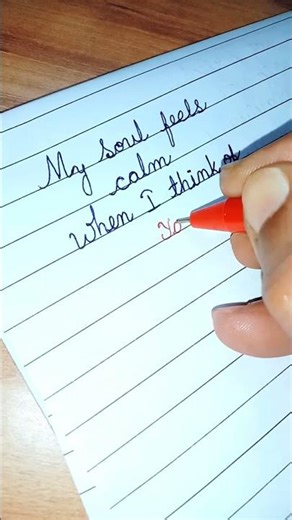 My soul feels
calm
When I think of
Yo